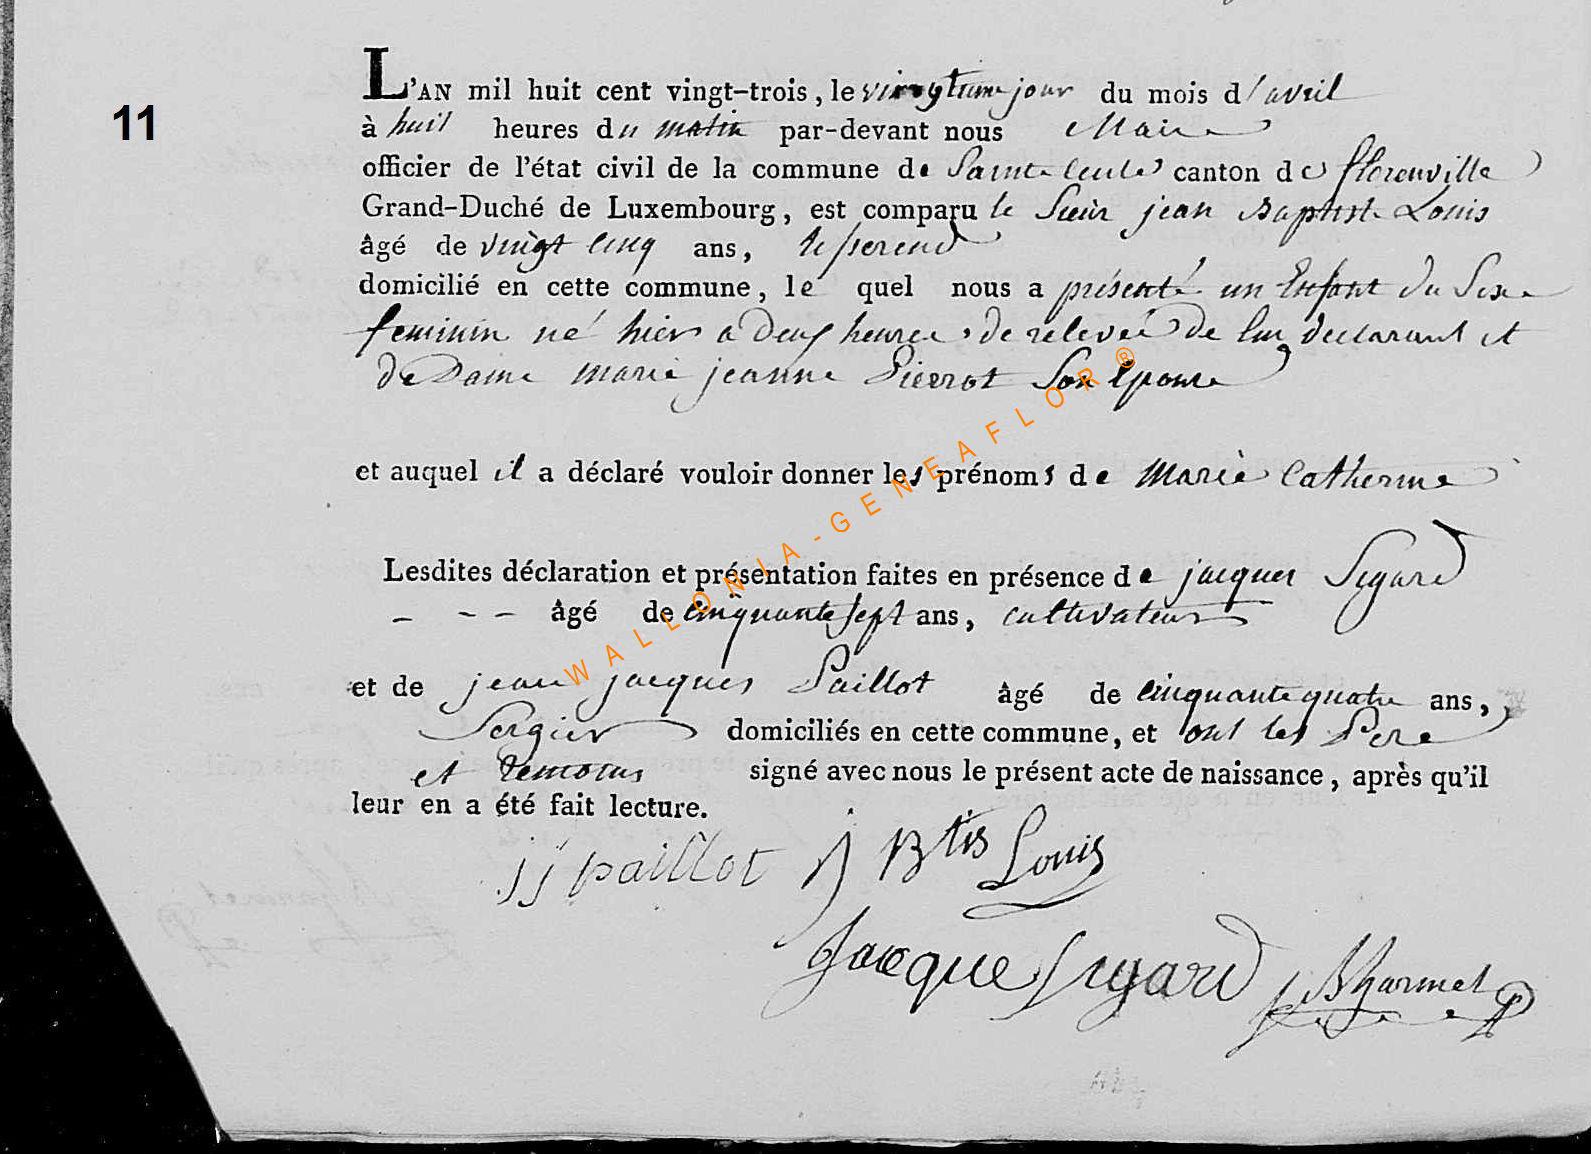 11
L'AN mil huit cent vingt-trois, le vingtieme jour du mois d'avril
à huit heures du matin par-devant nous Maire
officier de l'état civil de la commune de Sainte Cecile canton de florenville
Grand-Duché de Luxembourg, est comparu le Sieur jean Baptiste Louis
âgé de vingt cinq ans, tisserend
domicilié en cette commune, le quel nous a présenté un Enfant du Sexe
feminin né hier a deux heures de relevée de lui declarant et
de Dame marie jeanne Pierrot Son Epouse
et auquel il a déclaré vouloir donner les prénoms de Marie Catherine
Lesdites déclaration et présentation faites en présence de jacques Sigard
âgé de cinquante sept ans, cultivateur
et de jean jacques Paillot âgé de cinquante quatre ans,
Sergier domiciliés en cette commune, et ont les Pere
et temoins signé avec nous le présent acte de naissance, après qu'il
leur en a été fait lecture.
jj paillot j Btis Louis
Jacque sigard
WALLONIA-GENEAFLOR®